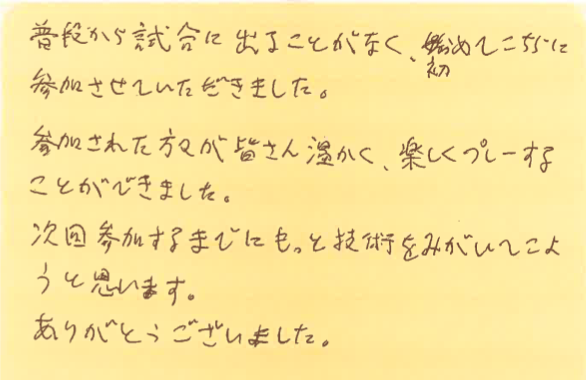 普段から試合に出ることがなく、初めてこちらに
参加させていただきました。
参加された方々が皆さん温かく、楽しくプレーする
ことができました。
次回参加するまでにもっと技術をみがいてこよ
うと思います。
ありがとうございました。